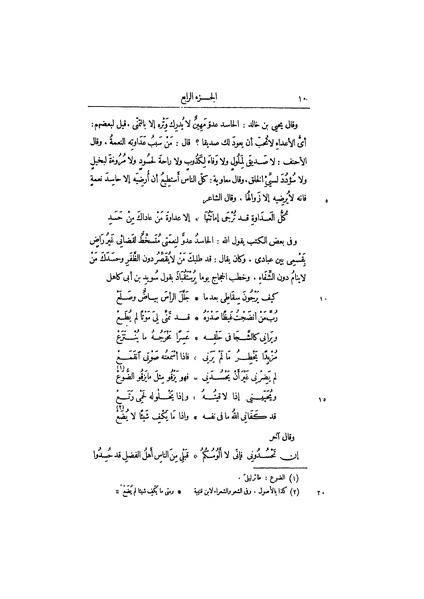 ١٠ الجزء الرابع
وقال يحيى بن خالد : الحاسد عدوّ مَهِينٌ لا يُدرك وَتْره إلا بالتمنّى . قيل لبعضهم :
أىّ الأعداء لا تُحبّ أن يعودَ لك صديقا ؟ قال : مَنْ سببُ عداوته النعمةُ . وقال
الأحنف : لا صديقَ لملولٍ ولا وفاءَ لكَذُوب ولا راحةَ لحسود ولا مُروءةَ لبخيل
ولا سُؤدُدَ لسيِّئ الخلق . وقال معاوية : كلّ الناس أستطيع أن أُرضِيَه إلا حاسدَ نعمةٍ
٥ فانه لا يُرضيه إلا زوالُها . وقال الشاعر
كُلُّ العَداوة قد تُرْجَى إماتَتُها * إلا عداوةَ مَنْ عاداك مِنْ حَسَدِ
وفى بعض الكتب يقول الله : الحاسدُ عدوٌّ لنِعمتى مُتَسخِّطٌ لقضائى غيرُ راضٍ
بقِسْمِى بين عبادى . وكان يقال : قد طلبك مَنْ لا يُقصِّر دون الظَّفَر وحسدك مَنْ
لا ينامُ دون الشفاء . وخطب الحجاج يوما برُسْتَقُبَاذَ بقول سُويد بن أبى كاهل
١٠ كيف يَرْجُونَ سِقَاطِى بعد ما * جَلَّلَ الرأسَ بياضٌ وصَلَعْ
رُبَّ مَنْ أنضجتُ غيظًا صَدْرَهُ * قد تمنَّى لِىَ مَوْتًا لم يُطَعْ
ويَرَانِى كالشَّجَا فى حَلْقه * عَسِرًا مَخْرَجُهُ ما يُنْتَزَعْ
مُزْبِدًا يَخْطِرُ ما لم يَرَنِى * فاذا أسمعتُه صَوْتِى انْقَمَعْ
لم يَضِرْنِى غيرَ أن يَحْسُدَنِى * فهو يَزْقُو مثلَ ما يَزْقُو الضُّوَعْ (١)
١٥ ويُحَيِّينِى إذا لاقيتُهُ * وإذا يَخْلُو له لَحْمِى رَتَعْ
قد كفانِى اللهُ ما فى نفسه * وإذا ما يَكْفِ شيئًا لا يُضَعْ (٢)
وقال آخر
إن تَحْسُدُونى فإنّى لا ألُومُكُمُ * قَبْلِى مِنَ الناسِ أهلُ الفضلِ قد حُسِدُوا
(١) الضوع : طائر ليلىّ .
٢٠ (٢) كذا بالأصول . وفى الشعر والشعراء لابن قتيبة * ومتى ما يكف شيئا لم يُضَعْ * =